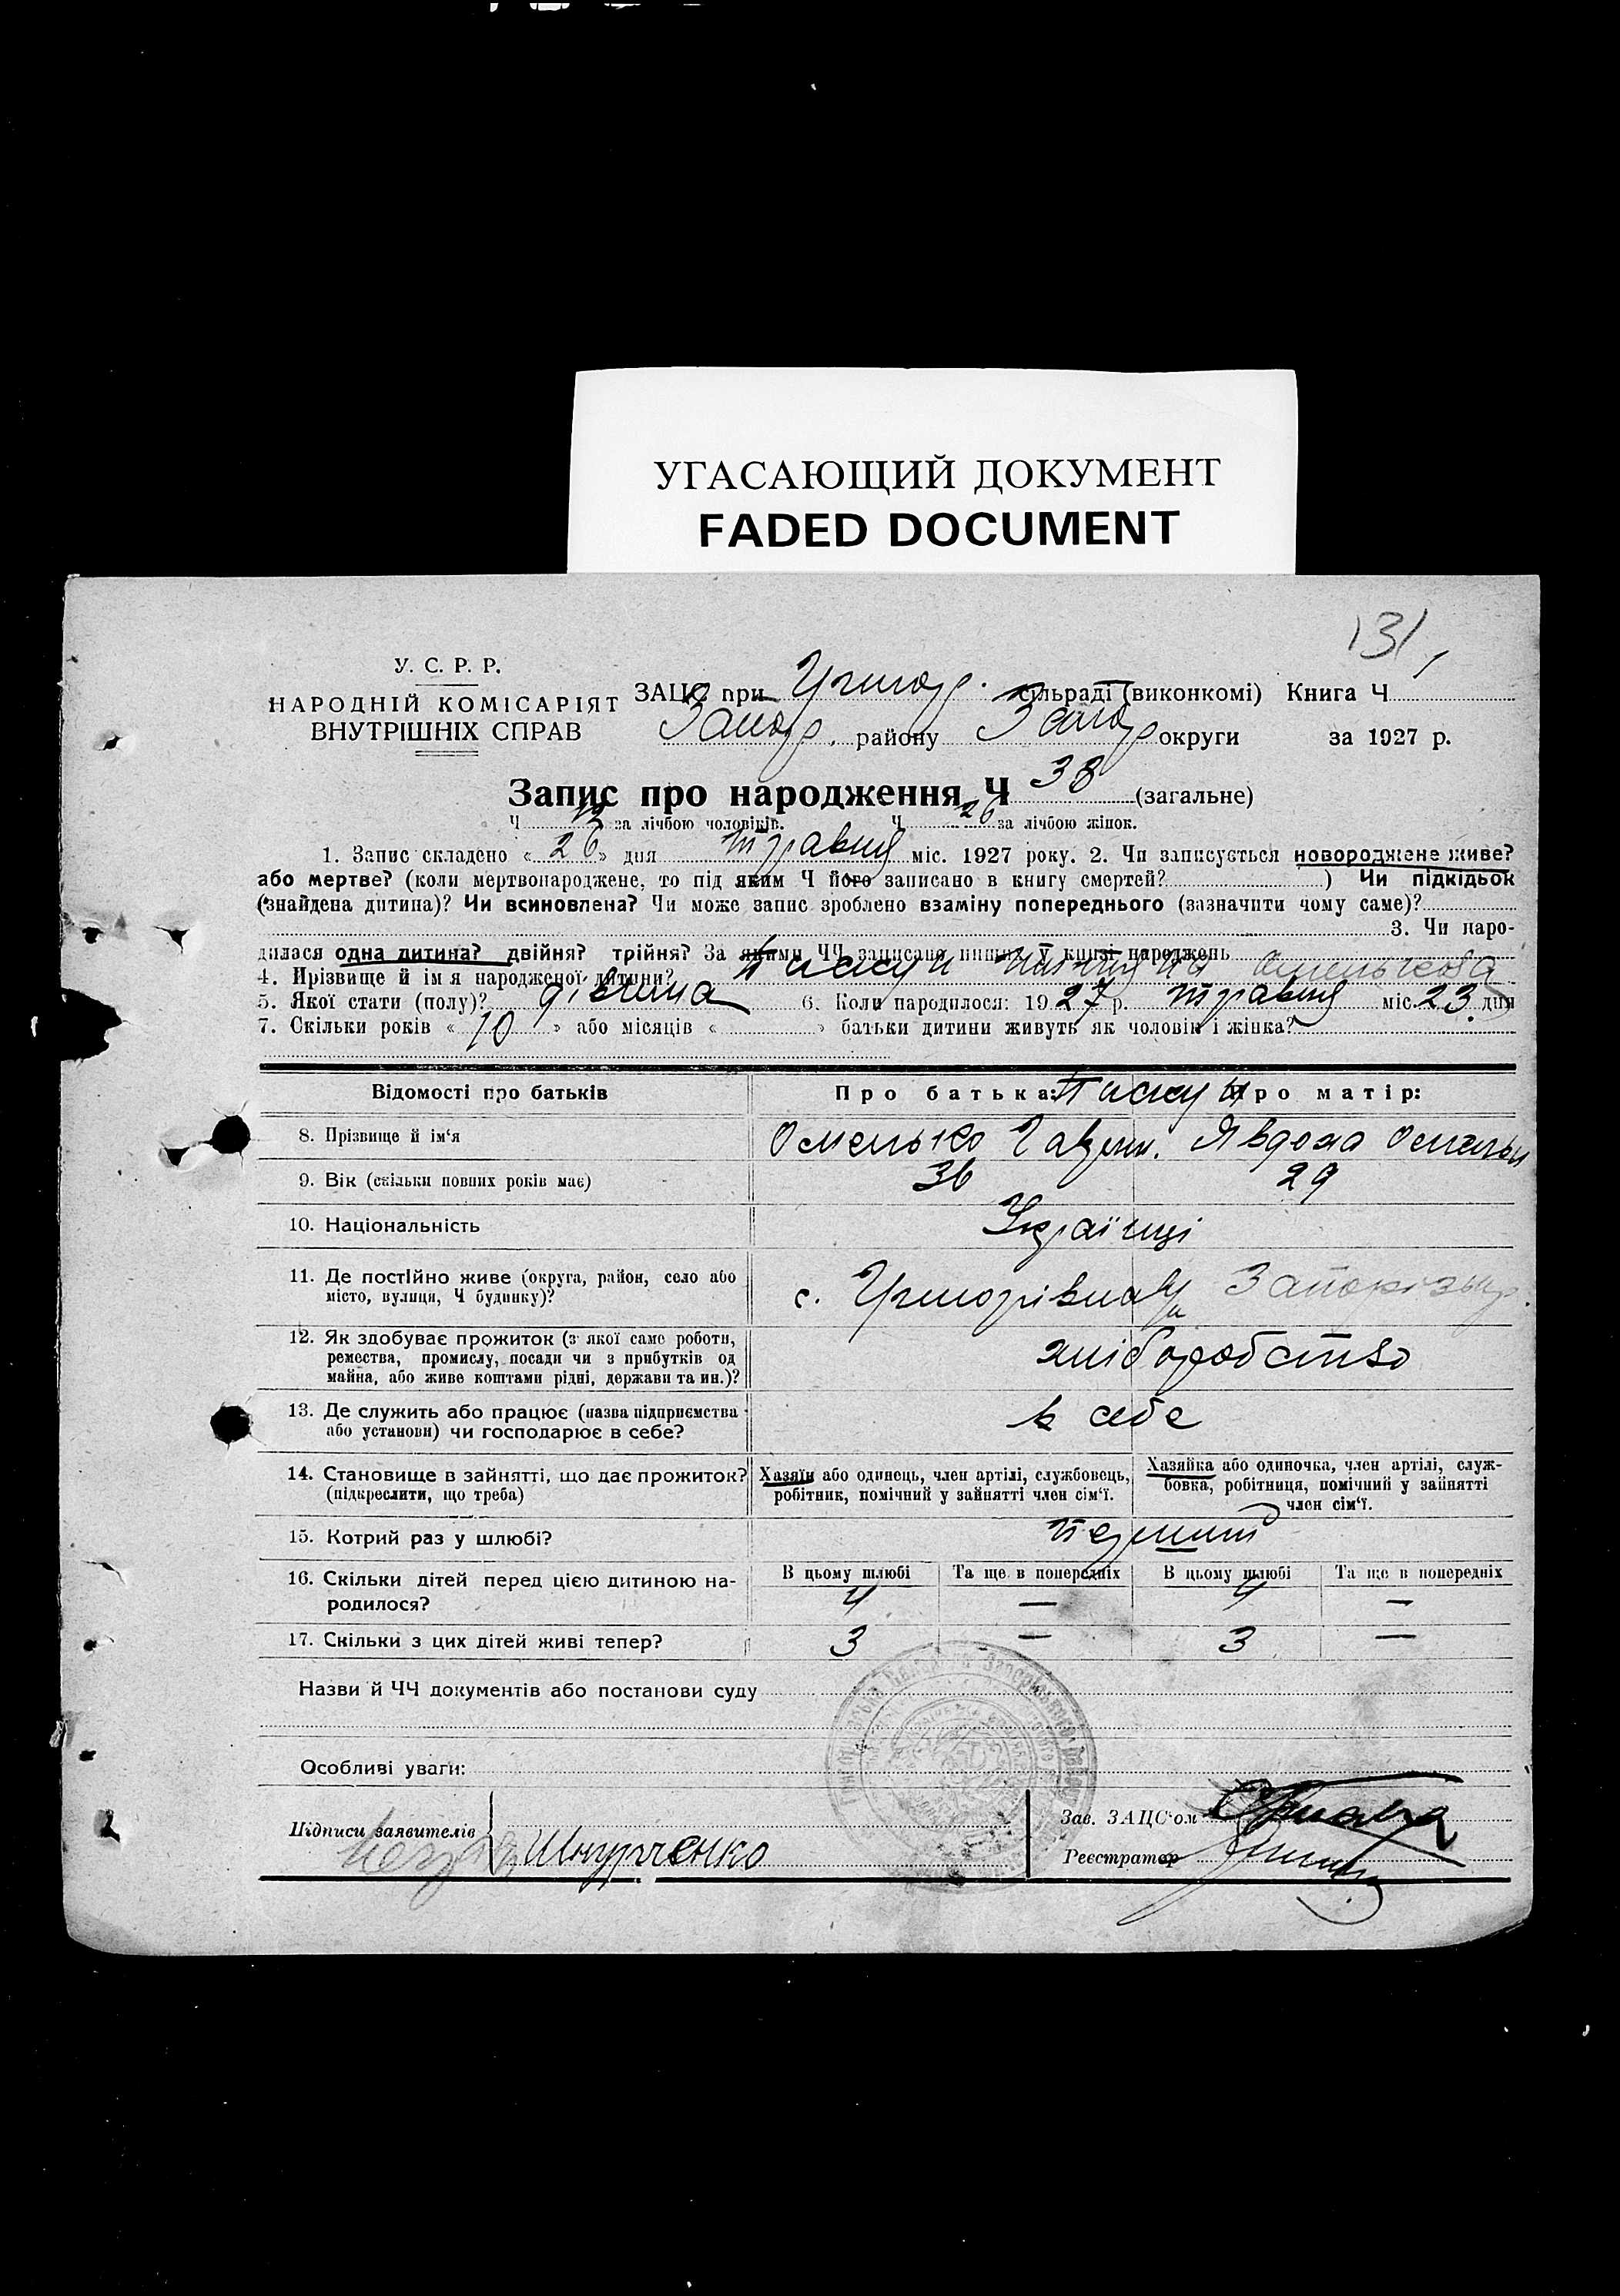 УГАСАЮЩИЙ ДОКУМЕНТ
FADED DOCUMENT
131
У. С. Р. Р.
НАРОДНІЙ КОМІСАРІЯТ
ВНУТРІШНІХ СПРАВ
ЗАЦС при сільраді (виконкомі) Книга Ч
Запор. району Запор округи за 1927 р.
Запис про народження Ч 38 (загальне)
Ч 12 за лічбою чоловіків. Ч 26 за лічбою жінок.
1. Запис складено « 26 » дня травня міс. 1927 року. 2. Чи записується новороджене живе?
або мертве? (коли мертвонароджене, то під яким Ч його записано в книгу смертей? ) Чи підкідьок
(знайдена дитина)? Чи всиновлена? Чи може запис зроблено взаміну попереднього (зазначити чому саме)?
3. Чи наро-
дилася одна дитина? двійня? трійня? За якими ЧЧ записано инших у книзі народжень
4. Прізвище й ім'я народженої дитини?
5. Якої стати (полу)? дівчина 6. Коли народилося: 1927 р. травня міс. 23 дня
7. Скільки років « 10 » або місяців « » батьки дитини живуть як чоловік і жінка?
Відомості про батьків Про батька: Про матір:
8. Прізвище й ім'я Омелько Явдоха
9. Вік (скільки повних років має) 36 29
10. Національність Українці
11. Де постійно живе (округа, район, село або
місто, вулиця, Ч будинку)? с.
12. Як здобуває прожиток (з якої саме роботи,
ремества, промислу, посади чи з прибутків од
майна, або живе коштами рідні, держави та ин.)? хліборобство
13. Де служить або працює (назва підприємства
або установи) чи господарює в себе? в себе
14. Становище в зайнятті, що дає прожиток?
(підкреслити, що треба)
Хазяїн або одинець, член артілі, службовець,
робітник, помічний у зайнятті член сім'ї.
Хазяйка або одиночка, член артілі, служ-
бовка, робітниця, помічний у зайнятті
член сім'ї.
15. Котрий раз у шлюбі? первий
16. Скільки дітей перед цією дитиною на-
родилося?
В цьому шлюбі Та ще в попередніх В цьому шлюбі Та ще в попередніх
4 — 4 —
17. Скільки з цих дітей живі тепер? 3 — 3 —
Назви й ЧЧ документів або постанови суду
Особливі уваги:
Підписи заявителів Шнурченко
Зав. ЗАЦС'ом
Реєстратор